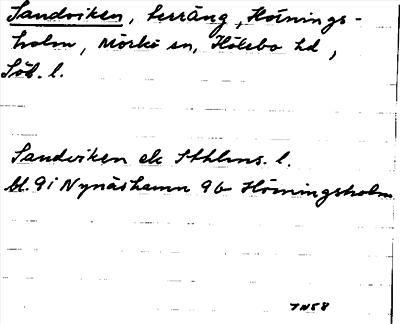 Sandviken, terräng, Hörnings-
holm, Mörkö sn, Hölebo hd,
Söd. l.
Sandviken ek Sthlms. l.
bl. 9i Nynäshamn 9b Hörningsholm